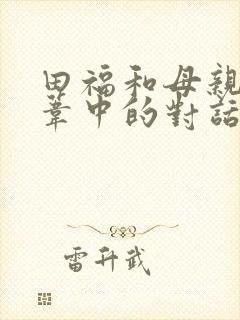 田福和母親
葦中的對話
雷升武